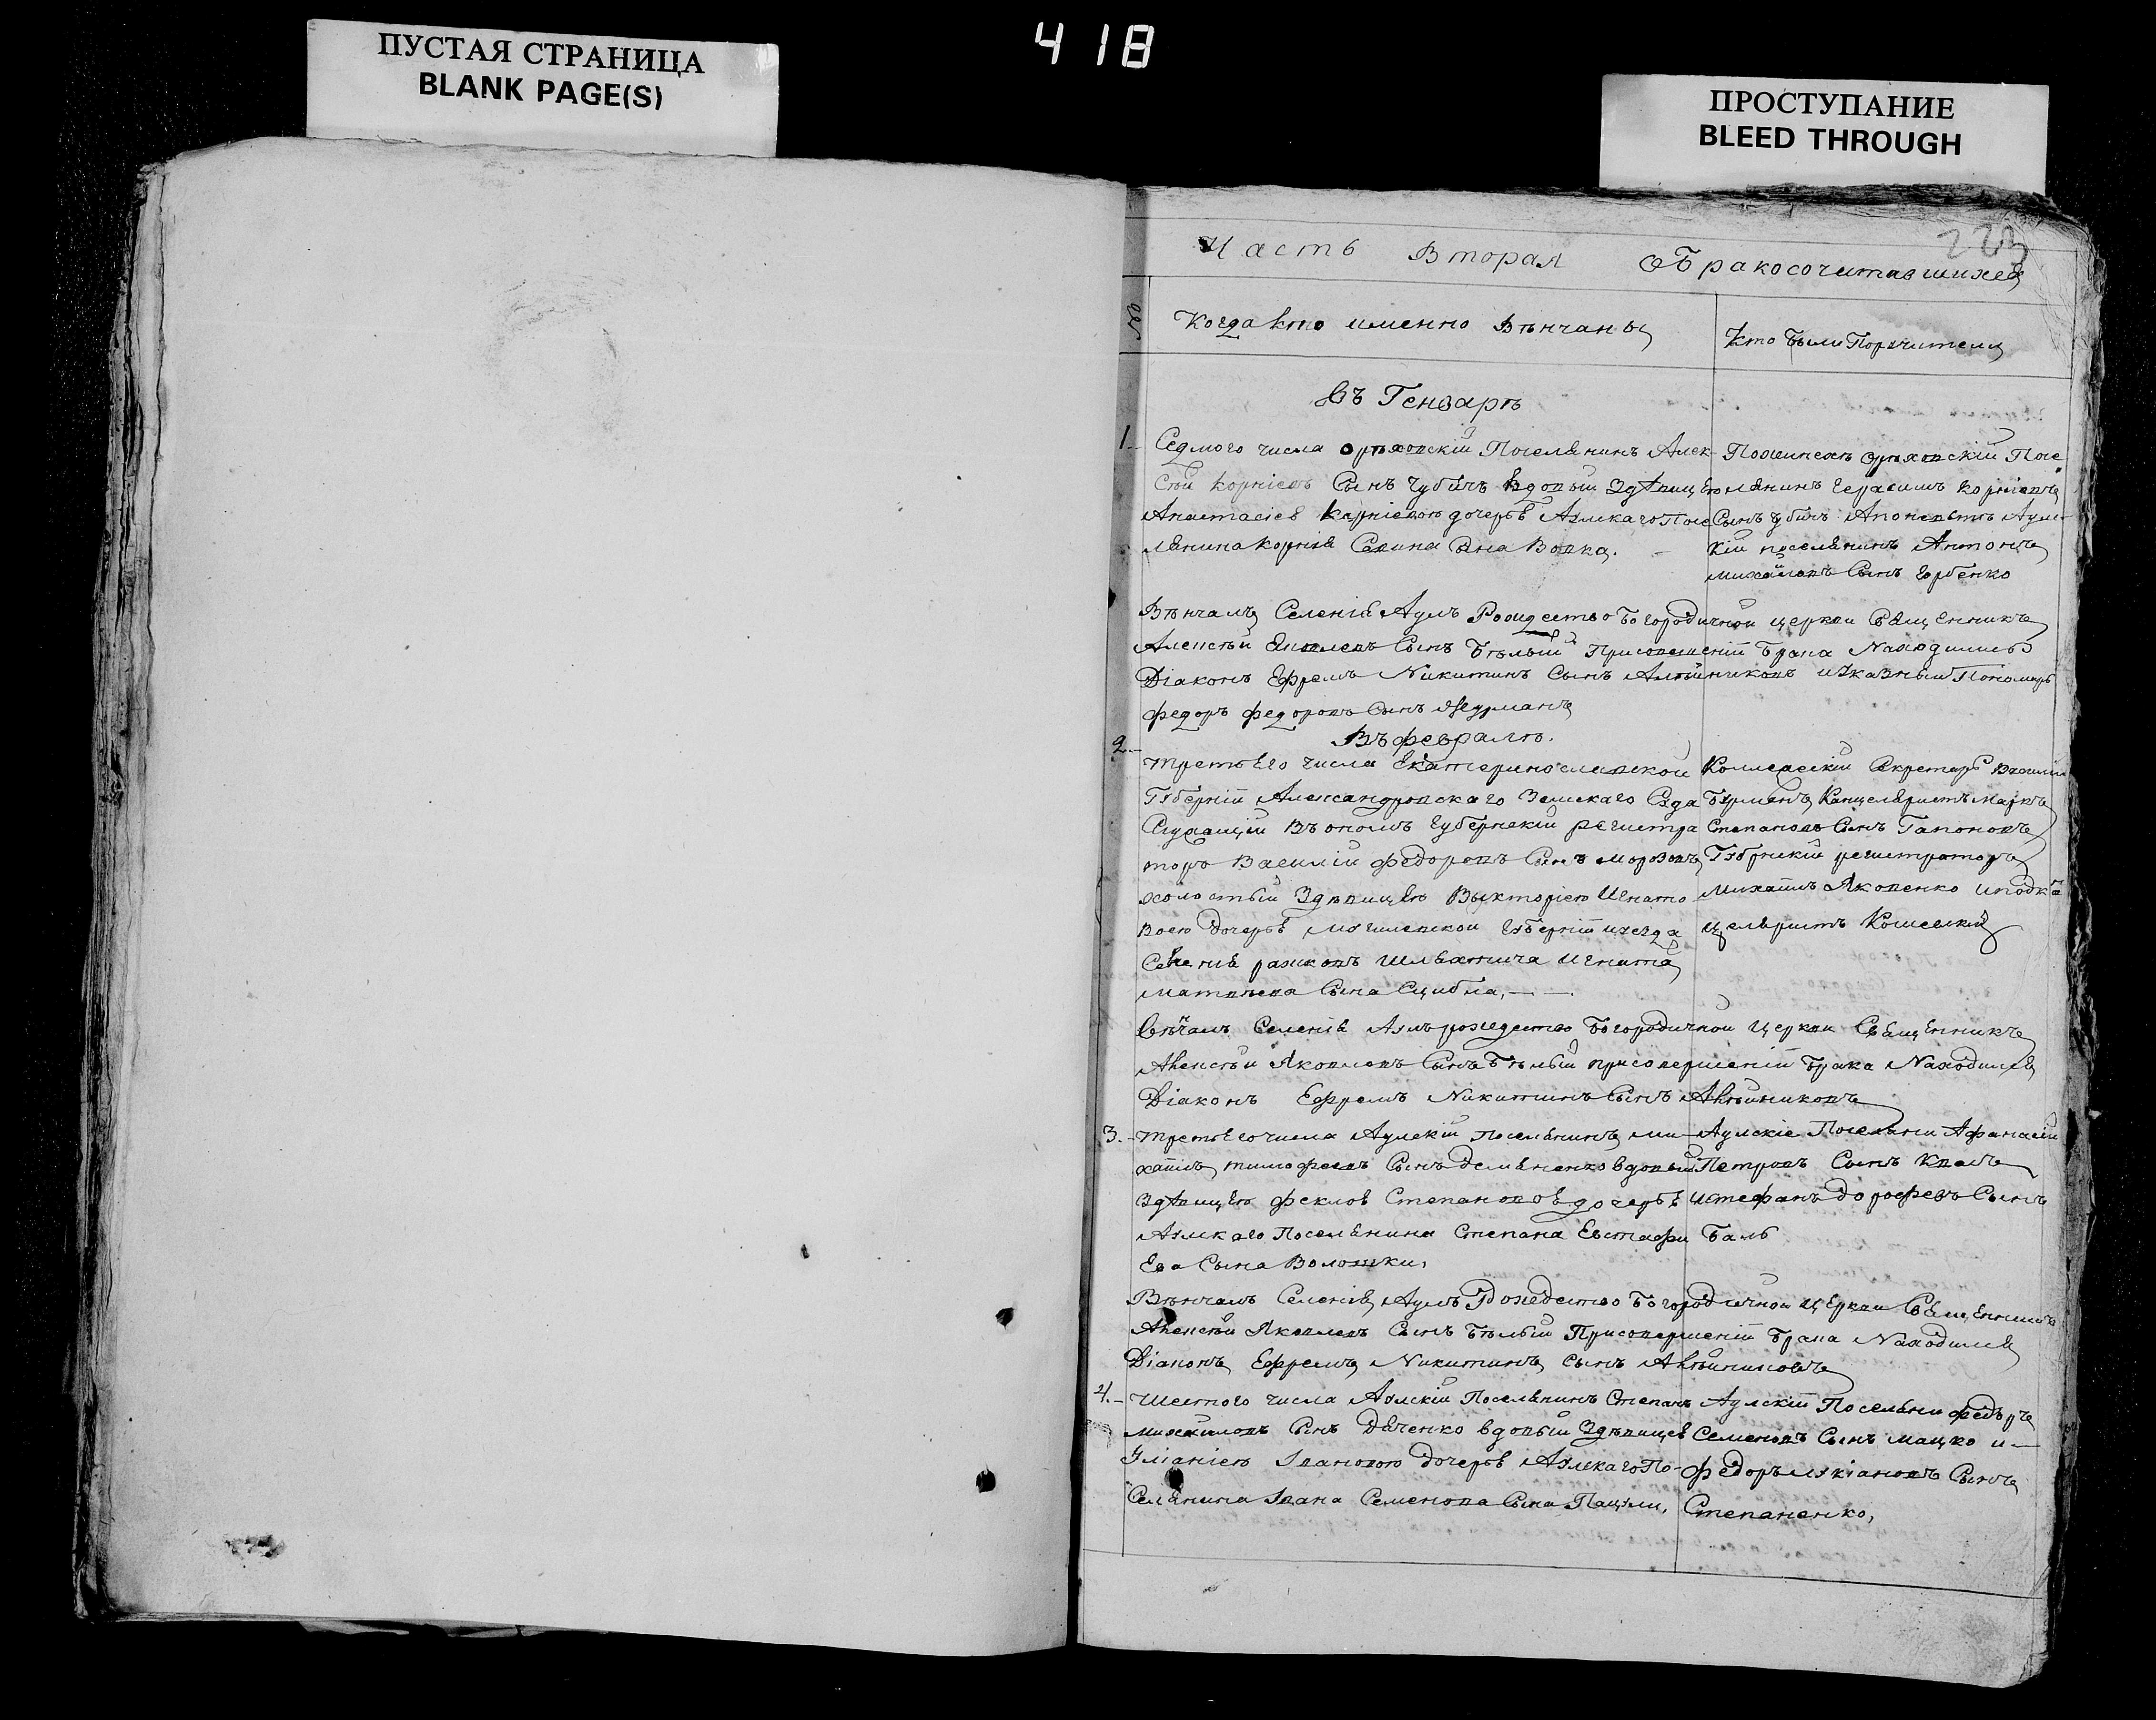 ПУСТАЯ СТРАНИЦА
BLANK PAGE(S)
418
ПРОСТУПАНИЕ
BLEED THROUGH
Часть Вторая ОБракосочитавшихся
Когда кто именно Вѣнчаны
Кто были Поручители
Въ Генварѣ
1.
Седмого числа орѣховскій Поселянинъ Алек-
сѣй Корніевъ Сынъ Чубичъ вдовый Здѣвицею
Анастасіею Карніевою дочерью Аулскаго Посе
лянина Корнія Савина Сына Вовка.
орѣховскій Посе
лянинъ Герасимъ Корніевъ
Сынъ Чубичъ Аулс
кій поселянинъ Антонъ
михайловъ Сынъ Горбенко
Вѣнчалъ Селенія Аулъ Рождество Богородичной церкви Священникъ
Алексѣй Яковлевъ Сынъ Бѣлый Присовершеніи Брака Находились
Діаконъ Ефремъ Никитинъ Сынъ Алѣйниковъ Пономарь
федоръ федоровъ Сынъ
Въ февралѣ.
2.
третьего числа Екатеринославской
Губерніи Александровскаго Земскаго Суда
Служащій Въ ономъ Губернскій регистра
торъ Василій федоровъ Сынъ морозовъ
холостый Здѣвицею Викторіею Игнато
вою дочерью могилевской Губерніи
Игната
матвѣева Сына
Коллежскій Секретарь Василій
Канцеляристъ маркъ
Степановъ Сынъ Гапоновъ
Губернскій регистраторъ
михаилъ Яковенко иподкан
целяристъ
Вѣнчалъ Селенія Аулъ рождество Богородичной Церкви Священникъ
Алексѣй Яковлевъ Сынъ Бѣлый присовершеніи Брака Находился
Діаконъ Ефремъ Никитинъ Сынъ Алѣйниковъ
3.
третьего числа Аулскій поселянинъ ми-
хаилъ тимофеевъ Сынъ демяненко вдовый
Здѣвицею феклою Степановою дочерью
Аулскаго Поселянина Степана Евстафи
Ева Сына Волошки,
Аулскіе Поселяни Афанасій
Петровъ Сынъ
истефанъ дорофеевъ Сынъ
Баль
Вѣнчалъ Селенія Аулъ Рождество Богородичной церкви Священникъ
Алексѣй Яковлевъ Сынъ Бѣлый Присовершеніи Брака Находился
Діаконъ Ефремъ Никитинъ сынъ Алѣйниковъ
4.
шестого числа Аулскій Поселянинъ Степанъ
михайловъ Сынъ Дяченко вдовый Здѣвицею
Уліаніею Івановою дочерью Аулскаго По-
Селянина Івана Семенова Сына
Аулскіи Поселяни федоръ
Семеновъ Сынъ мацко и
федоръ лукіановъ Сынъ
Степаненко,